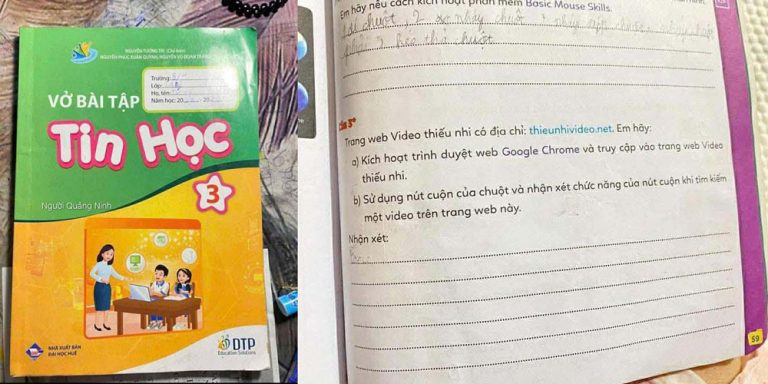 NGUYỄN TƯỜNG TRI (Chủ biên)
NGUYỄN PHÚC XUÂN QUỲNH, NGUYỄN VÕ ĐOAN
VỞ BÀI TẬP
Trường:
Lớp:
Họ, tên:
Năm học: 20 - 20
Tin Học
3
Người Quảng Ninh
NHÀ XUẤT BẢN
ĐẠI HỌC HUẾ
DTP
Education Solutions
Em hãy nêu cách kích hoạt phần mềm Basic Mouse Skills.
chuột 2 nháy chuột
3 kéo thả chuột
Câu 3*
Trang web Video thiếu nhi có địa chỉ: thieunhivideo.net. Em hãy:
a) Kích hoạt trình duyệt web Google Chrome và truy cập vào trang web Video
thiếu nhi.
b) Sử dụng nút cuộn của chuột và nhận xét chức năng của nút cuộn khi tìm kiếm
một video trên trang web này.
Nhận xét:
59